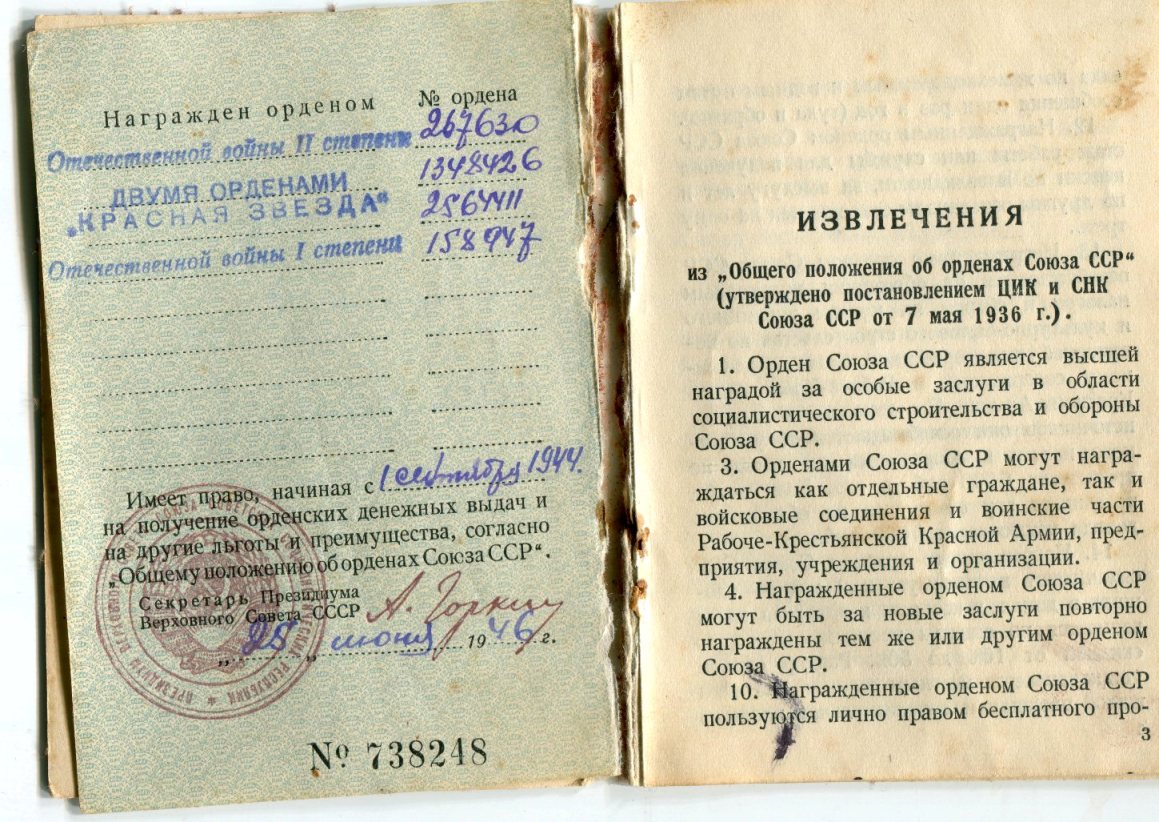 Награжден орденом № ордена
Отечественной войны II степени 267630
ДВУМЯ ОРДЕНАМИ 1348426
„КРАСНАЯ ЗВЕЗДА“ 2564411
Отечественной войны I степени 158947
Имеет право, начиная с 1 сентября 1944.
на получение орденских денежных выдач и
на другие льготы и преимущества, согласно
„Общему положению об орденах Союза ССР“.
Секретарь Президиума
Верховного Совета СССР А. Горкин
„25„ июня 1946 г.
№ 738248
ИЗВЛЕЧЕНИЯ
из „Общего положения об орденах Союза ССР“
(утверждено постановлением ЦИК и СНК
Союза ССР от 7 мая 1936 г.).
1. Орден Союза ССР является высшей
наградой за особые заслуги в области
социалистического строительства и обороны
Союза ССР.
3. Орденами Союза ССР могут награ-
ждаться как отдельные граждане, так и
войсковые соединения и воинские части
Рабоче-Крестьянской Красной Армии, пред-
приятия, учреждения и организации.
4. Награжденные орденом Союза ССР
могут быть за новые заслуги повторно
награждены тем же или другим орденом
Союза ССР.
10. Награжденные орденом Союза ССР
пользуются лично правом бесплатного про-
3